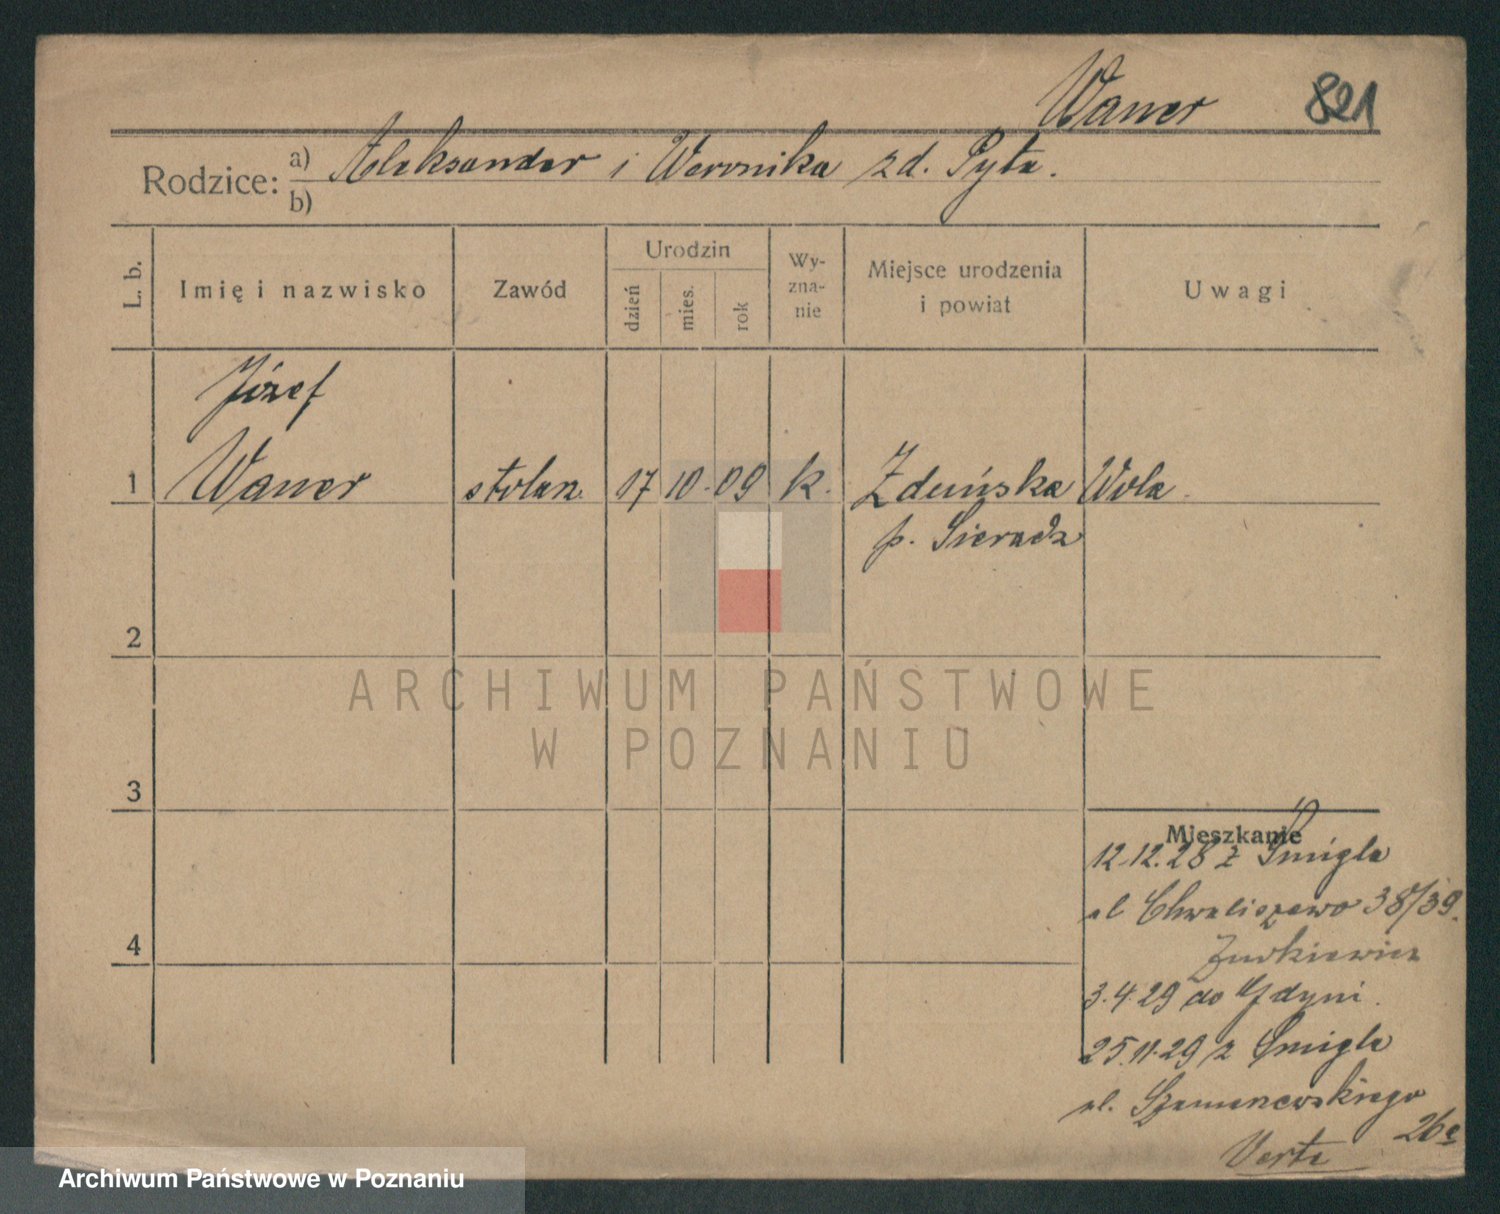 Waner 821
Rodzice: a) Aleksander i Weronika zd. Pyta.
b)
L. b.
Imię i nazwisko
Zawód
Urodzin
dzień
mies.
rok
Wy-
zna-
nie
Miejsce urodzenia
i powiat
Uwagi
Józef
1 Waner stolarz 17 10. 09 k. Zduńska Wola.
p. Sieradz
2
3
4
Mieszkanie
12.12.28 z Śmigla
ul Chwaliszewo 38/39.
3.4.29 do Gdyni.
25.11.29 z Śmigla
ul.
26a
Verte
ARCHIWUM PAŃSTWOWE
W POZNANIU
Archiwum Państwowe w Poznaniu